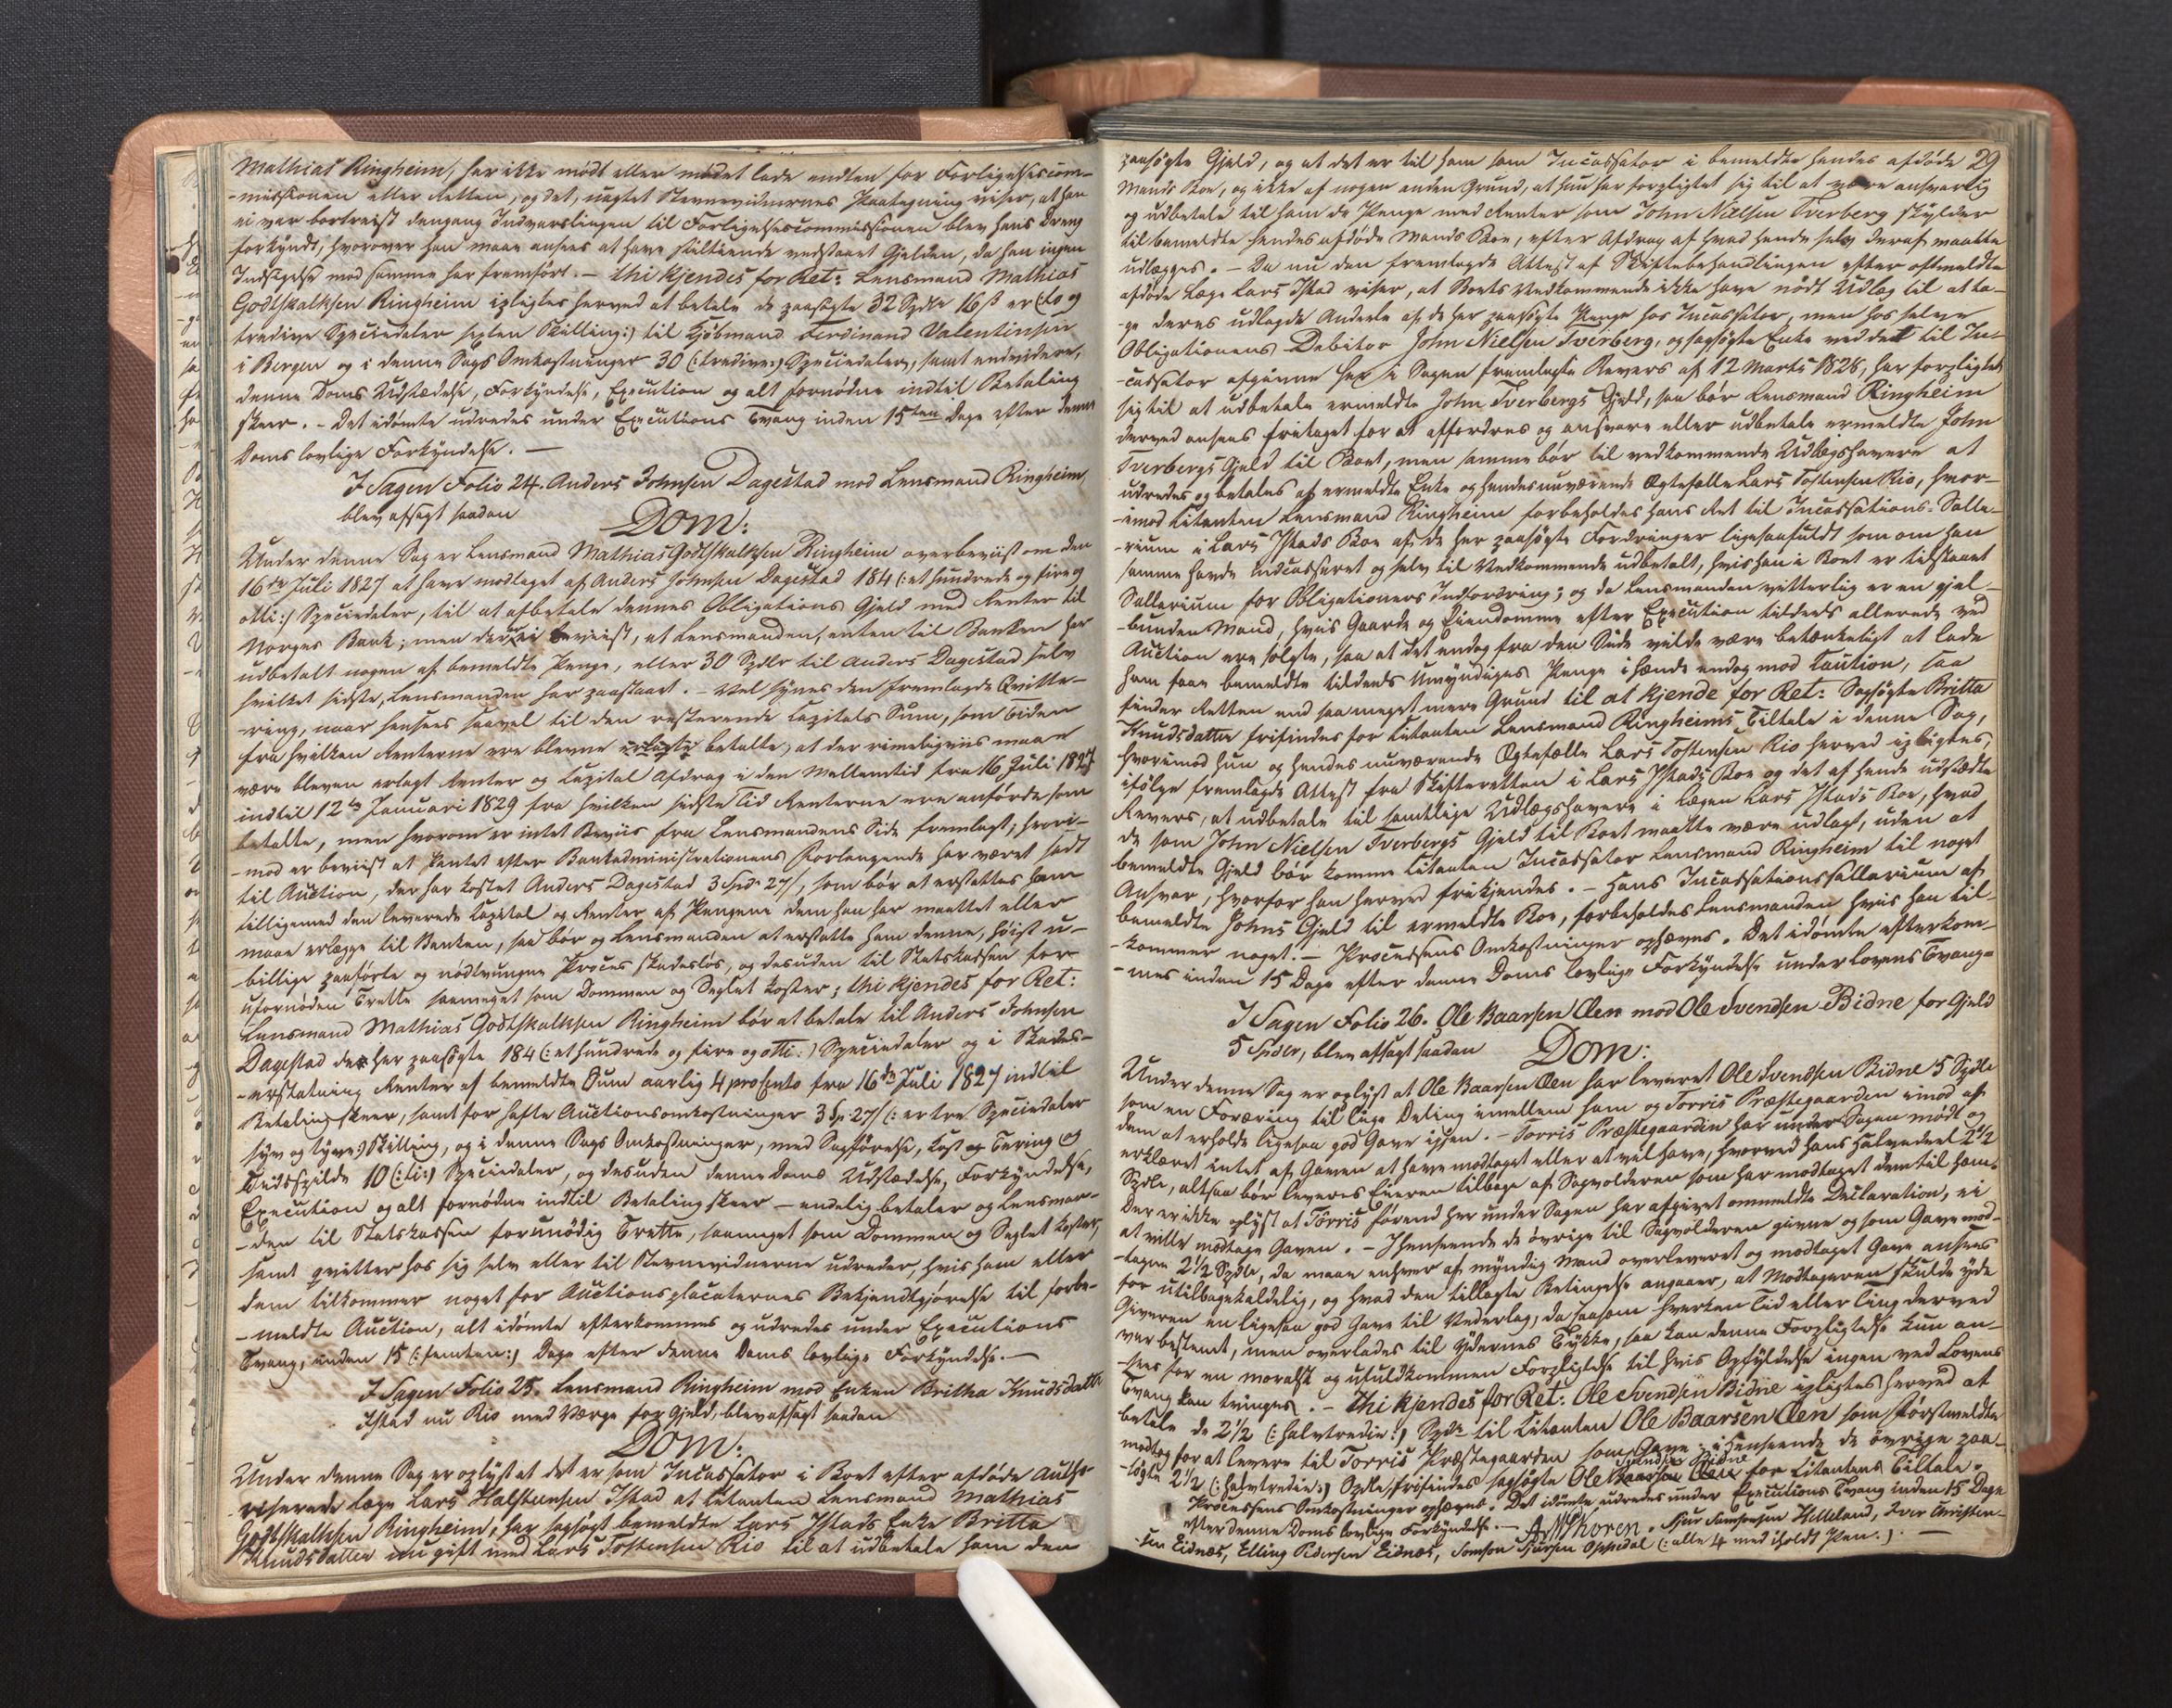 Mathias Ringheim, har ikke mødt eller mødet lade endten for Forligelsescom-
-missionen eller Retten, og det, uagtet Stevnevidnernes Paategning viser, at han
ei var bortreist dengang Indvarslingen til Forligelsescommissionen blev hans Dreng
forkyndt, hvorover han maae ansees at have stiltiende vedstaaet Gjelden, da han ingen
Indsigelse mod samme har fremført. – thi kjendes for Ret: Lensmand Mathias
Godtskalksen Ringheim ipligtes herved at betale de paasøgte 32 Spdlr 16 ß er (:to og
tredive Speciedaler sexten Skilling:) til Kjøbmand Ferdinand Valentinsen
i Bergen og i denne Sags Omkostninger 30 (:tredive:) Speciedaler, samt endvidere,
denne Doms Udstædelse, Forkyndelse, Execution og alt fornødne indtil Betaling
skeer. – Det idømte udredes under Executions Tvang inden 15ten Dage efter denne
Doms lovlige Forkyndelse. –
I Sagen Folio 24. Anders Johnsen Dagestad mod Lensmand Ringheim,
blev afsagt saadan
Dom:
Under denne Sag er Lensmand Mathias Godtskalksen Ringheim overbeviist om den
16de Juli 1827 at have modtaget af Anders Johnsen Dagestad 184 (:et hundrede og fire og
otti:) Speciedaler, til at afbetale dennes Obligations Gjeld med Renter til
Norges Bank; men det er ei beviist, at Lensmanden, enten til Banken har
udbetalt nogen af bemeldte Penge, eller 30 Spdlr til Anders Dagestad selv
hvilket sidste, Lensmanden har paastaaet. – Vel synes den fremlagde Qvitte-
-ring, naar hensees saavel til den resterende Capitals Sum, som tiden
fra hvilken Renterne ere blevne erlagte betalte, at der rimeligviis maae
være bleven erlagt Renter og Capital Afdrag i den Mellemtid fra 16 Juli 1827
indtil 12te Januari 1829 fra hvilken sidste Tid Renterne ere anførde som
betalte, men hvorom er intet Beviis fra Lensmandens Side fremlagt; hvori-
-mod er beviist at Pantet efter Bankadministrationens Forlangende har været sadt
til Auction, der har kostet Anders Dagestad 3 Spd 27 ß, som bør at erstattes ham
tilligemed den leverede Capital og Renter af Pengene dem han har maattet eller
maae erlægge til Banken, saa bør og Lensmanden at erstatte ham denne, høist u-
-billige paaførte og nødtvungne Proces skadesløs, og desuden til Statskassen for
ufornøden Trette saameget som Dommen og Seglet koster; thi kjendes for Ret:
Lensmand Mathias Godtskalksen Ringheim bør at betale til Anders Johnsen
Dagestad de her paasøgte 184 (:et hundrede og fire og otti:) Speciedaler og i Skades-
-erstatning Renter af bemeldte Sum aarlig 4 pro Cento fra 16de Juli 1827 indtil
Betaling skeer, samt for hafte Auctionsomkostninger 3 Sp: 27 ß (:er tre Speciedaler
syv og tyve:) Skilling, og i denne Sags Omkostninger, med Sagførelse, Kost og Tæring og
Tidsspilde 10 (:ti:) Speciedaler, og desuden denne Doms Udstædelse, Forkyndelse,
Execution og alt fornødne indtil Betaling skeer – endelig betaler og Lensman-
-den til Statskassen for unødig Trette, saameget som Dommen og Seglet koster,
samt qvitter hos sig selv eller til Stevnevidnerne udreder, hvis ham eller
dem tilkommer noget for Auctionsplacaternes Bekjendtgjørelse til forbe-
-meldte Auction, alt idømte efterkommes og udredes under Executions
Tvang, inden 15 (:femten:) Dage efter denne Doms lovlige Forkyndelse. –
I Sagen Folio 25. Lensmand Ringheim mod Enken Britha Knudsdatter
Istad nu Rio med Værge for Gjeld, blev afsagt saadan
Dom:
Under denne Sag er oplyst at det er som Incassator i Boet efter afdøde Autho-
riserede Læge Lars Halstensen Istad at Citanten Lensmand Mathias
Godtskalksen Ringheim, har sagsøgt bemeldte Lars Istads Enke Britta
Knudsdatter nu gift med Lars Tostensen Rio til at udbetale ham den
29
paasøgte Gjeld, og at det er til ham som Incassator i bemeldte hendes afdøde
Mands Boe, og ikke af nogen anden Grund, at hun har forpligtet sig til at være ansvarlig
og udbetale til ham de Penge med Renter som John Nielsen Tverberg skylder
til bemeldte hendes afdøde Mands Boe, efter Afdrag af hvad hende selv deraf maatte
udlægges. – Da nu den fremlagde Attest af Skiftebehandlingen efter oftmeldte
afdøde Læge Lars Istad viser, at Boets Vedkommende ikke have nødt Udlæg til at ta-
-ge deres udlagde Andeele af de her paasøgte Penge hos Incassator, men hos selve
Obligationens Debitor John Nielsen Tverberg, og sagsøgte Enke ved det til In-
-cassator afgivne her i Sagen fremlagte Revers af 12 Marts 1828, har forpligtet
sig til at udbetale ermeldte John Tverbergs Gjeld, saa bør Lensmand Ringheim
derved ansees fritaget for at affordres og ansvare eller udbetale ermeldte John
Tverbergs Gjeld til Boet, men samme bør til vedkommende Udlægshavere at
udredes og betales af ermeldte Enke og hendes nuværende Ægtefælle Lars Tostensen Rio, hvor-
-imod Citanten Lensmand Ringheim forbeholdes hans Ret til Incassations-Salla-
-rium i Lars Istads Boe af de her paasøgte Fordringer ligesaafuldt som om han
samme havde indcasseret og selv til Vedkommende udbetalt, hvis han i Boet er tilstaaet
Sallarium for Obligationers Indfordring; og da Lensmanden vitterlig er en gjel-
-bunden Mand, hviis Gaarde og Eiendomme efter Execution tildeels allerede ved
Auction ere solgte, saa at det endog fra den Side vilde være betænkeligt at lade
ham faae bemeldte tildeels Umyndiges Penge i hænde endog mod Caution, saa
finder Retten end saameget mere Grund til at kjende for Ret: Sagsøgte Britta
Knudsdatter frifindes for Citanten Lensmand Ringheims Tiltale i denne Sag,
hvorimod hun og hendes nuværende Ægtefælle Lars Tostensen Rio herved ipligtes,
ifølge fremlagde Attest fra Skifteretten i Lars Istads Boe og det af hende udstædte
Revers, at udbetale til samtlige Udlægshavere i Lægen Lars Istads Boe, hvad
de som John Nielsen Tverbergs Gjeld til Boet maatte være udlagt, uden at
bemeldte Gjeld bør komme Citanten Incassator Lensmand Ringheim til noget
Ansvar, hvorfor han herved frikjendes. – Hans Incassationssallarium af
bemeldte Johns Gjeld til ermeldte Boe, forbeholdes Lensmanden hviis han til-
-kommer noget. – Processens Omkostninger ophæves. Det idømte efterkom-
-mes inden 15 Dage efter denne Doms lovlige Forkyndelse under Lovens Tvang.
I Sagen Folio 26. Ole Baarsen Øen mod Ole Svendsen Bidne for Gjeld
5 Spdlr, blev afsagt saadan Dom:
Under denne Sag er oplyst at Ole Baarsen Øen har leveret Ole Svendsen Bidne 5 Spdlr
som en Foræring til lige Deling imellem ham og Torris Præstegaarden imod af
dem at erholde ligesaa god Gave igjen. – Torris Præstegaarden har under Sagen mødt og
erklæret intet af Gaven at have modtaget eller at vil have, hvorved hans Halvedeel 2½
Spdlr, altsaa bør leveres Eieren tilbage af Sagvolderen som har modtaget dem til ham.
Der er ikke oplyst at Torris førend her under Sagen har afgivet ommeldte Declaration, ei
at ville modtage Gaven. – I henseende de øvrige til Sagvolderen givne og som Gave mod-
-tagne 2½ Spdlr, da maae enhver af myndig Mand overleveret og modtaget Gave ansees
for utilbagekaldelig, og hvad den tillagte Betingelse angaaer, at Modtageren skulde yde
Giveren en ligesaa god Gave til Vederlag, da saasom hverken Tid eller Ting derved
var bestemt, men overlades til Ydernes Tykke, saa kan denne Forpligtelse kun an-
-sees for en moralsk og ufuldkommen Forpligtelse til hvis Opfyldelse ingen ved Lovens
Tvang kan tvinges. – thi kjendes for Ret: Ole Svendsen Bidne ipligtes herved at
betale de 2½ (:halvtredie:) Spdr til Citanten Ole Baarsen Øen som førstmeldte
modtog for at levere til Torris Præstegaarden som Gave; i henseende de øvrige paa-
søgte 2½ (:halvtredie:) Spdlr, frifindes sagsøgte Ole Svendsen Bidne for Citantens Tiltale.
Processens Omkostninger ophæves. Det idømte udredes under Executions Tvang inden 15 Dage
efter denne Doms lovlige Forkyndelse. – Koren. Sjur Samsonsen Helleland, Iver Christen-
-sen Eidnes, Elling Pedersen Eidnes, Samson Sjursen Oppedal (:alle 4 med iholdt Pen.:) –